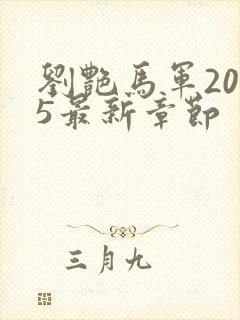 劉艷馬軍20
5最新章節
三月九